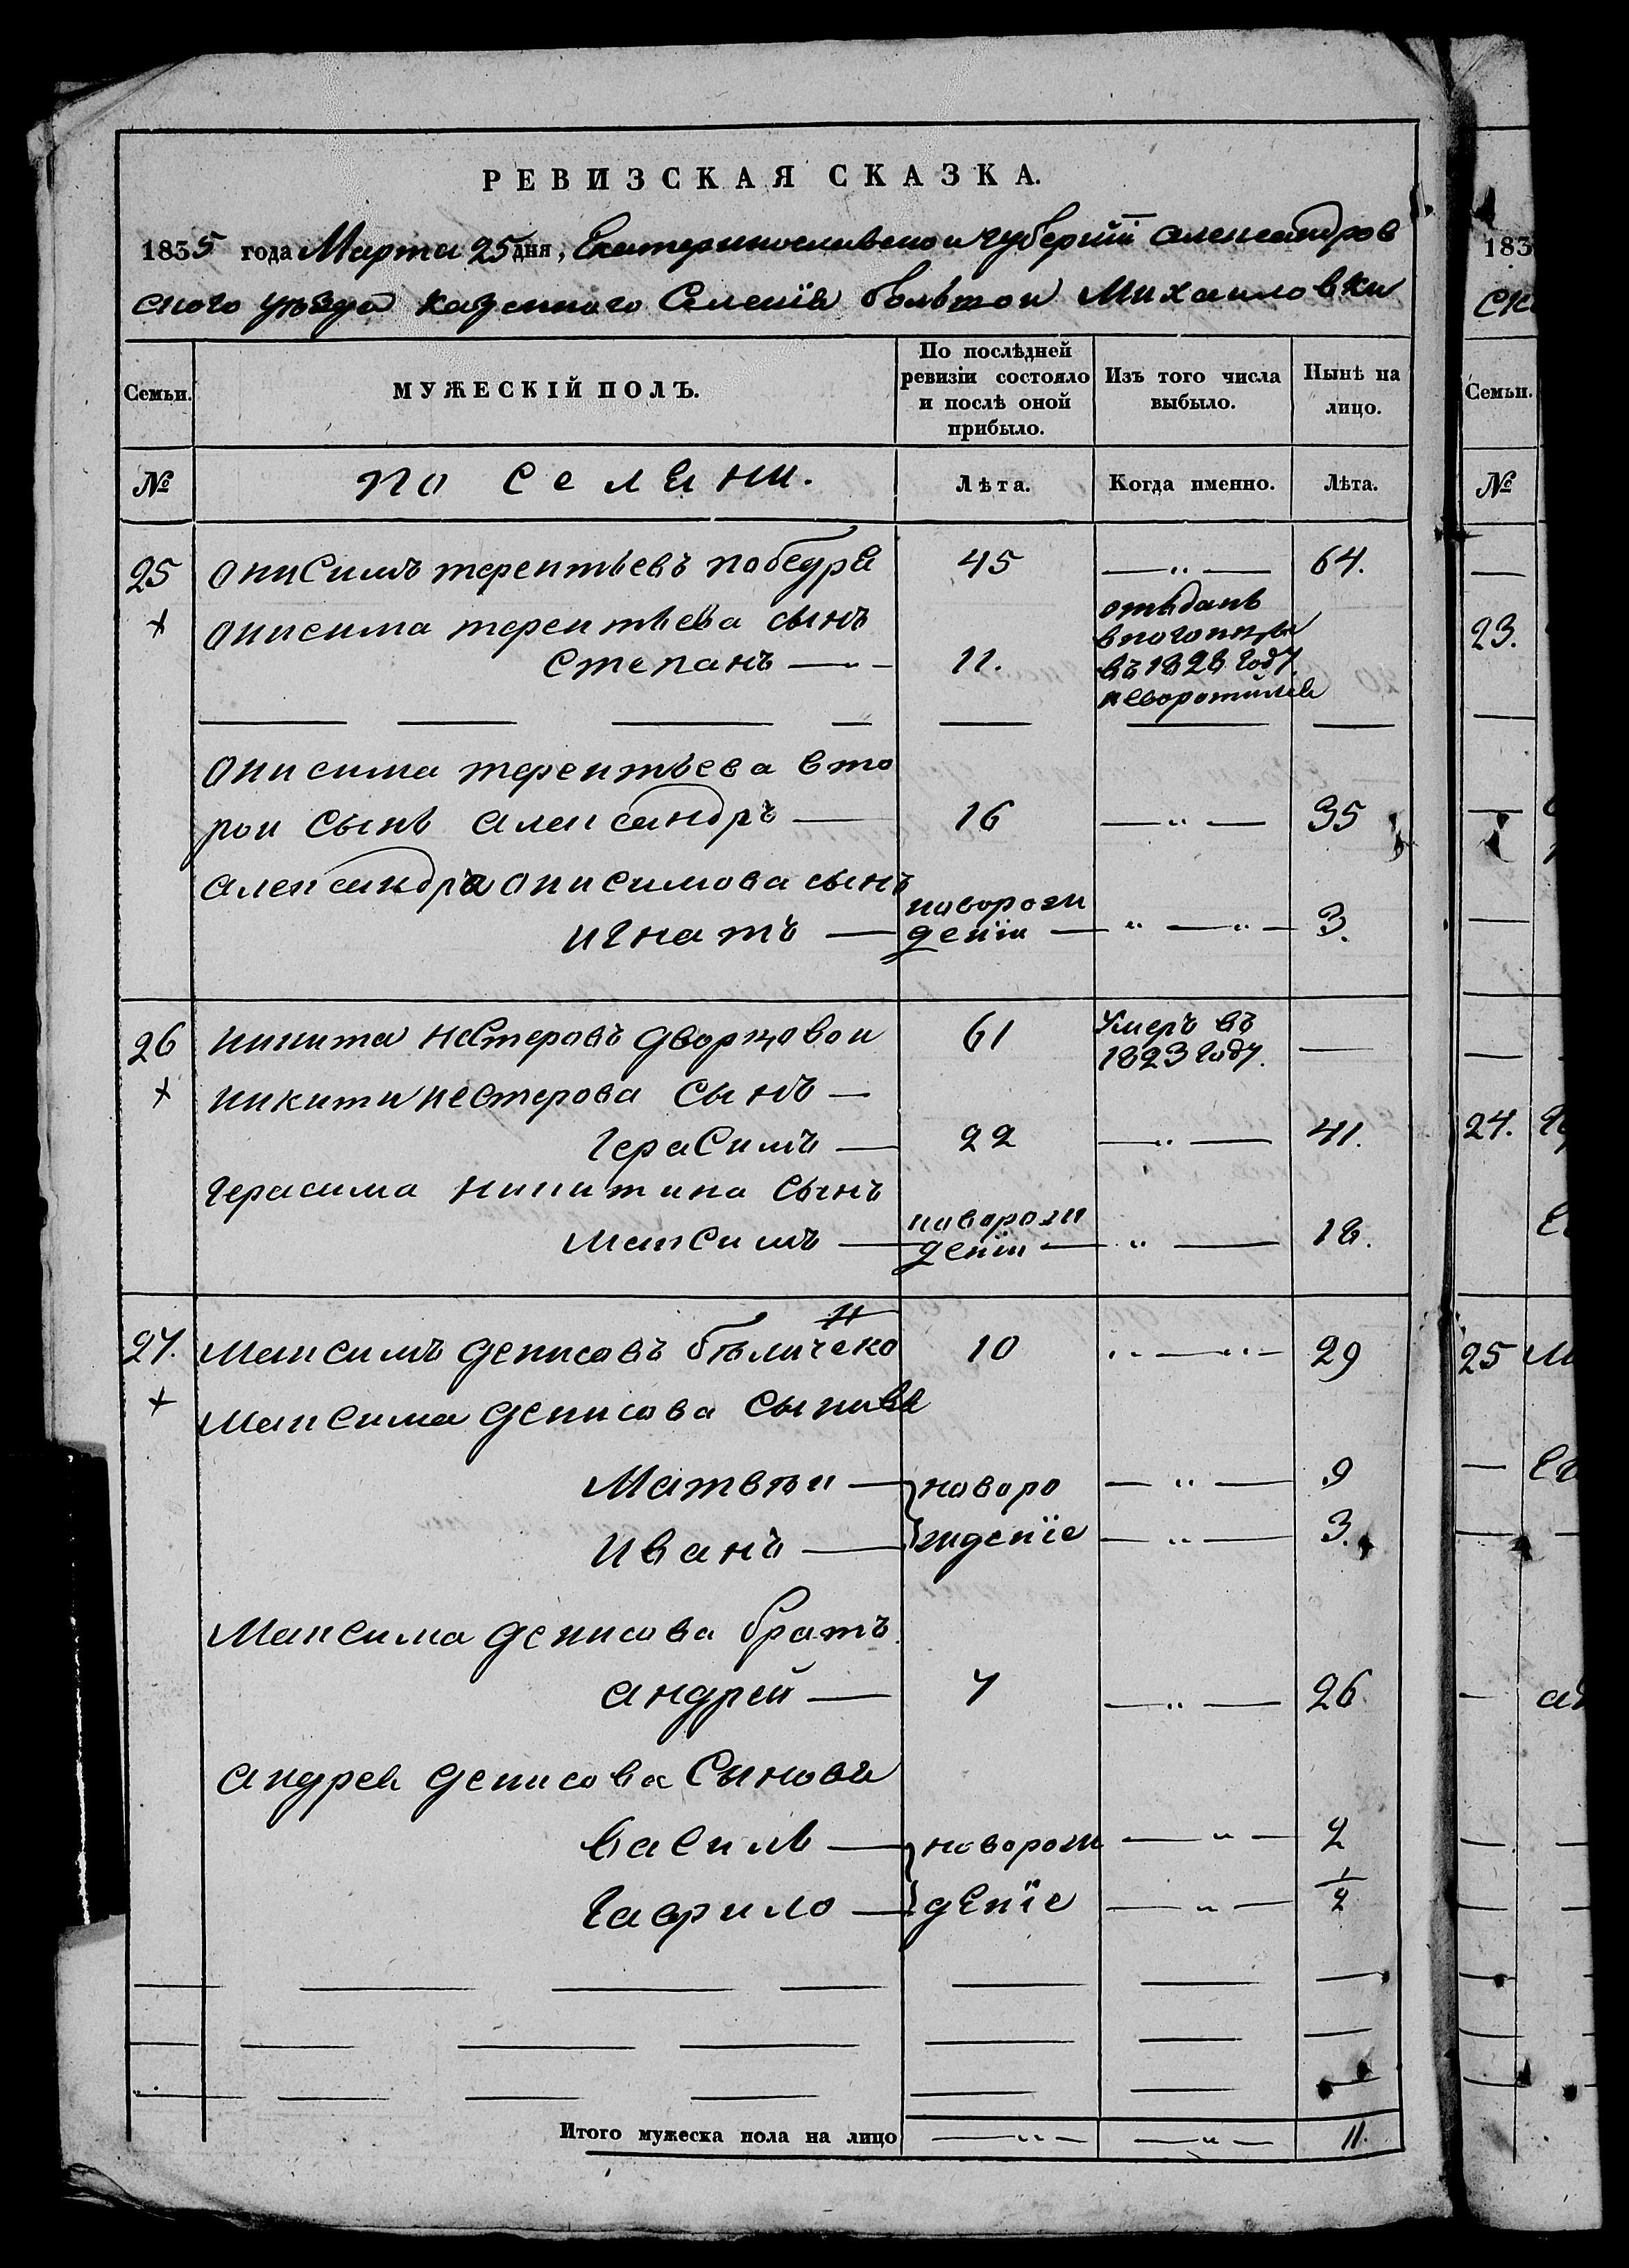 РЕВИЗСКАЯ СКАЗКА.
1835 года Марта 25 дня, Екатеринославской губерніи александров
ского уѣзда казенного Селенія большои Михаиловки
Семьи.
МУЖЕСКІЙ ПОЛЪ.
По послѣдней ревизіи состояло и послѣ оной прибыло.
Изъ того числа выбыло.
Нынѣ на лицо.
№
по селени.
Лѣта.
Когда именно.
Лѣта.
25 онисимъ терентьевъ победра 45 —〃— 64.
онисима терентьева сынъ
степанъ —〃— 11.
отъдань
въ 1828 году
неворотился
онисима терентьева вто
рои сынъ александръ — 16 —〃— 35
александра онисимова сынъ
игнатъ — новорож
деніи — 〃 — 〃 — 3.
26 никита нестеровъ дворцовои 61 Умеръ въ
1823 году. —
никити нестерова сынъ —
герасимъ — 22 —〃— 41.
герасима никитина сынъ
максимъ — новорож
деніи — 〃 — 18.
27. максимъ денисовъ бѣличеко 10 〃—〃— 29
н
максима денисова сынове
Матвѣи — новоро —〃— 9
иванъ — ждение —〃— 3.
максима денисова братъ
андрей — 7 —〃— 26.
андрея денисова сынове
василь — новорож —〃— 2
гаврило — деніе —〃— 1/2
Итого мужеска пола на лицо —〃— —〃— 11.
183
ск
Семьи.
№
23.
24.
25